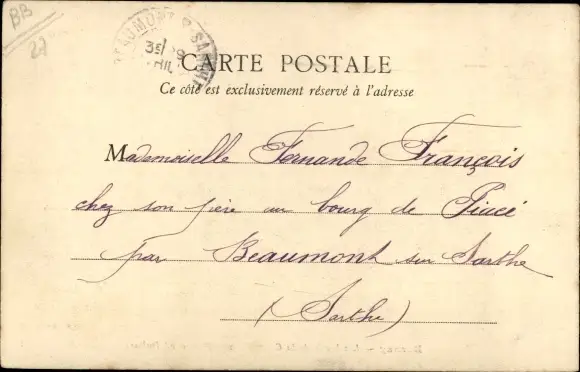 BB
27
BEAUMONT S SARTHE
CARTE POSTALE
Ce côté est exclusivement réservé à l'adresse
Mademoiselle Fernande François
chez son père au bourg de Piacé
par Beaumont sur Sarthe
(Sarthe)